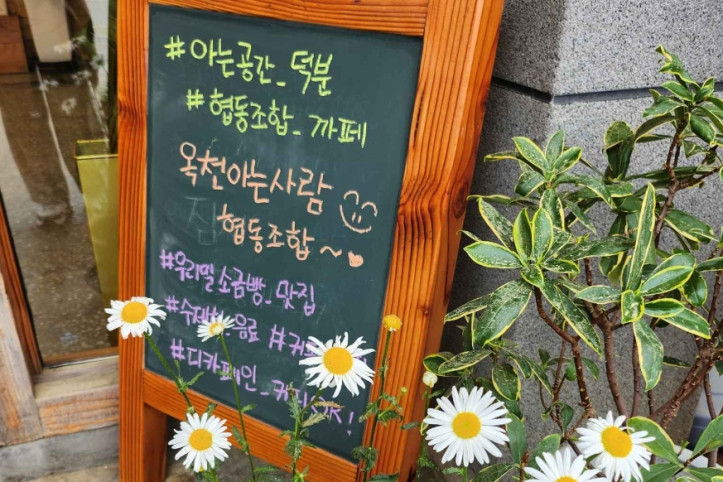 #아는공간_덕분
#협동조합_까페
옥천아는사람
협동조합~
#우리밀소금빵_맛집
음료
#디카페인
OK!